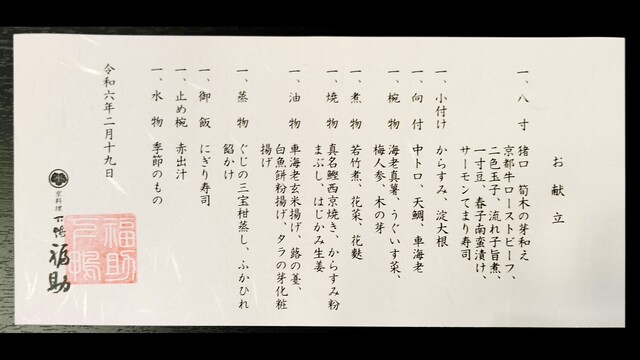 お献立
一、八寸 猪口 筍木の芽和え
京都牛ローストビーフ、
二色玉子、流れ子旨煮、
一寸豆、春子南蛮漬け、
サーモンてまり寿司
一、小付け からすみ、淀大根
一、向付 中トロ、天鯛、車海老
一、椀物 海老真薯、うぐいす菜、
梅人参、木の芽
一、煮物 若竹煮、花菜、花麩
一、焼物 真名鰹西京焼き、からすみ粉
まぶし、はじかみ生姜
一、油物 車海老玄米揚げ、蕗の薹、
白魚餅粉揚げ、タラの芽化粧
揚げ
一、蒸物 ぐじの三宝柑蒸し、ふかひれ
餡かけ
一、御飯 にぎり寿司
一、止め椀 赤出汁
一、水物 季節のもの
令和六年二月十九日
京料理 下鴨 福助
福助
下鴨